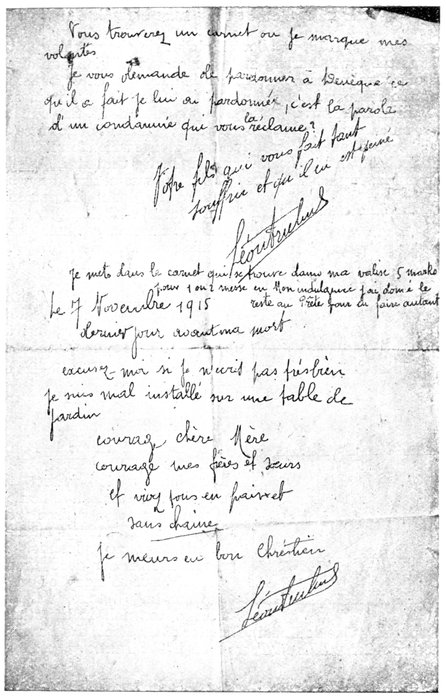 Vous trouverez un carnet ou je marque mes
volontés
je vous demande de pardonner à ce
qu'il a fait je lui ai pardonné, c'est la parole
d'un condamnée qui vous la réclame?
Votre fils qui vous fait tant
souffrir et qu'il en est peiné
Léon Trulin
Je mets dans le carnet qui se trouve dans ma valise 5 marks
pour 1 ou 2 messe en Mon indulgence j'ai donné le
reste au Prête pour en faire autant
Le 7 Novembre 1915
dernier jour avant ma mort
excusez moi si je n'ecrit pas très bien
je suis mal installé sur une table de
jardin
courage chère Mère
courage mes frères et sœurs
et vivez tous en paix et
sans haine
je meurs en bon Chrétien
Léon Trulin